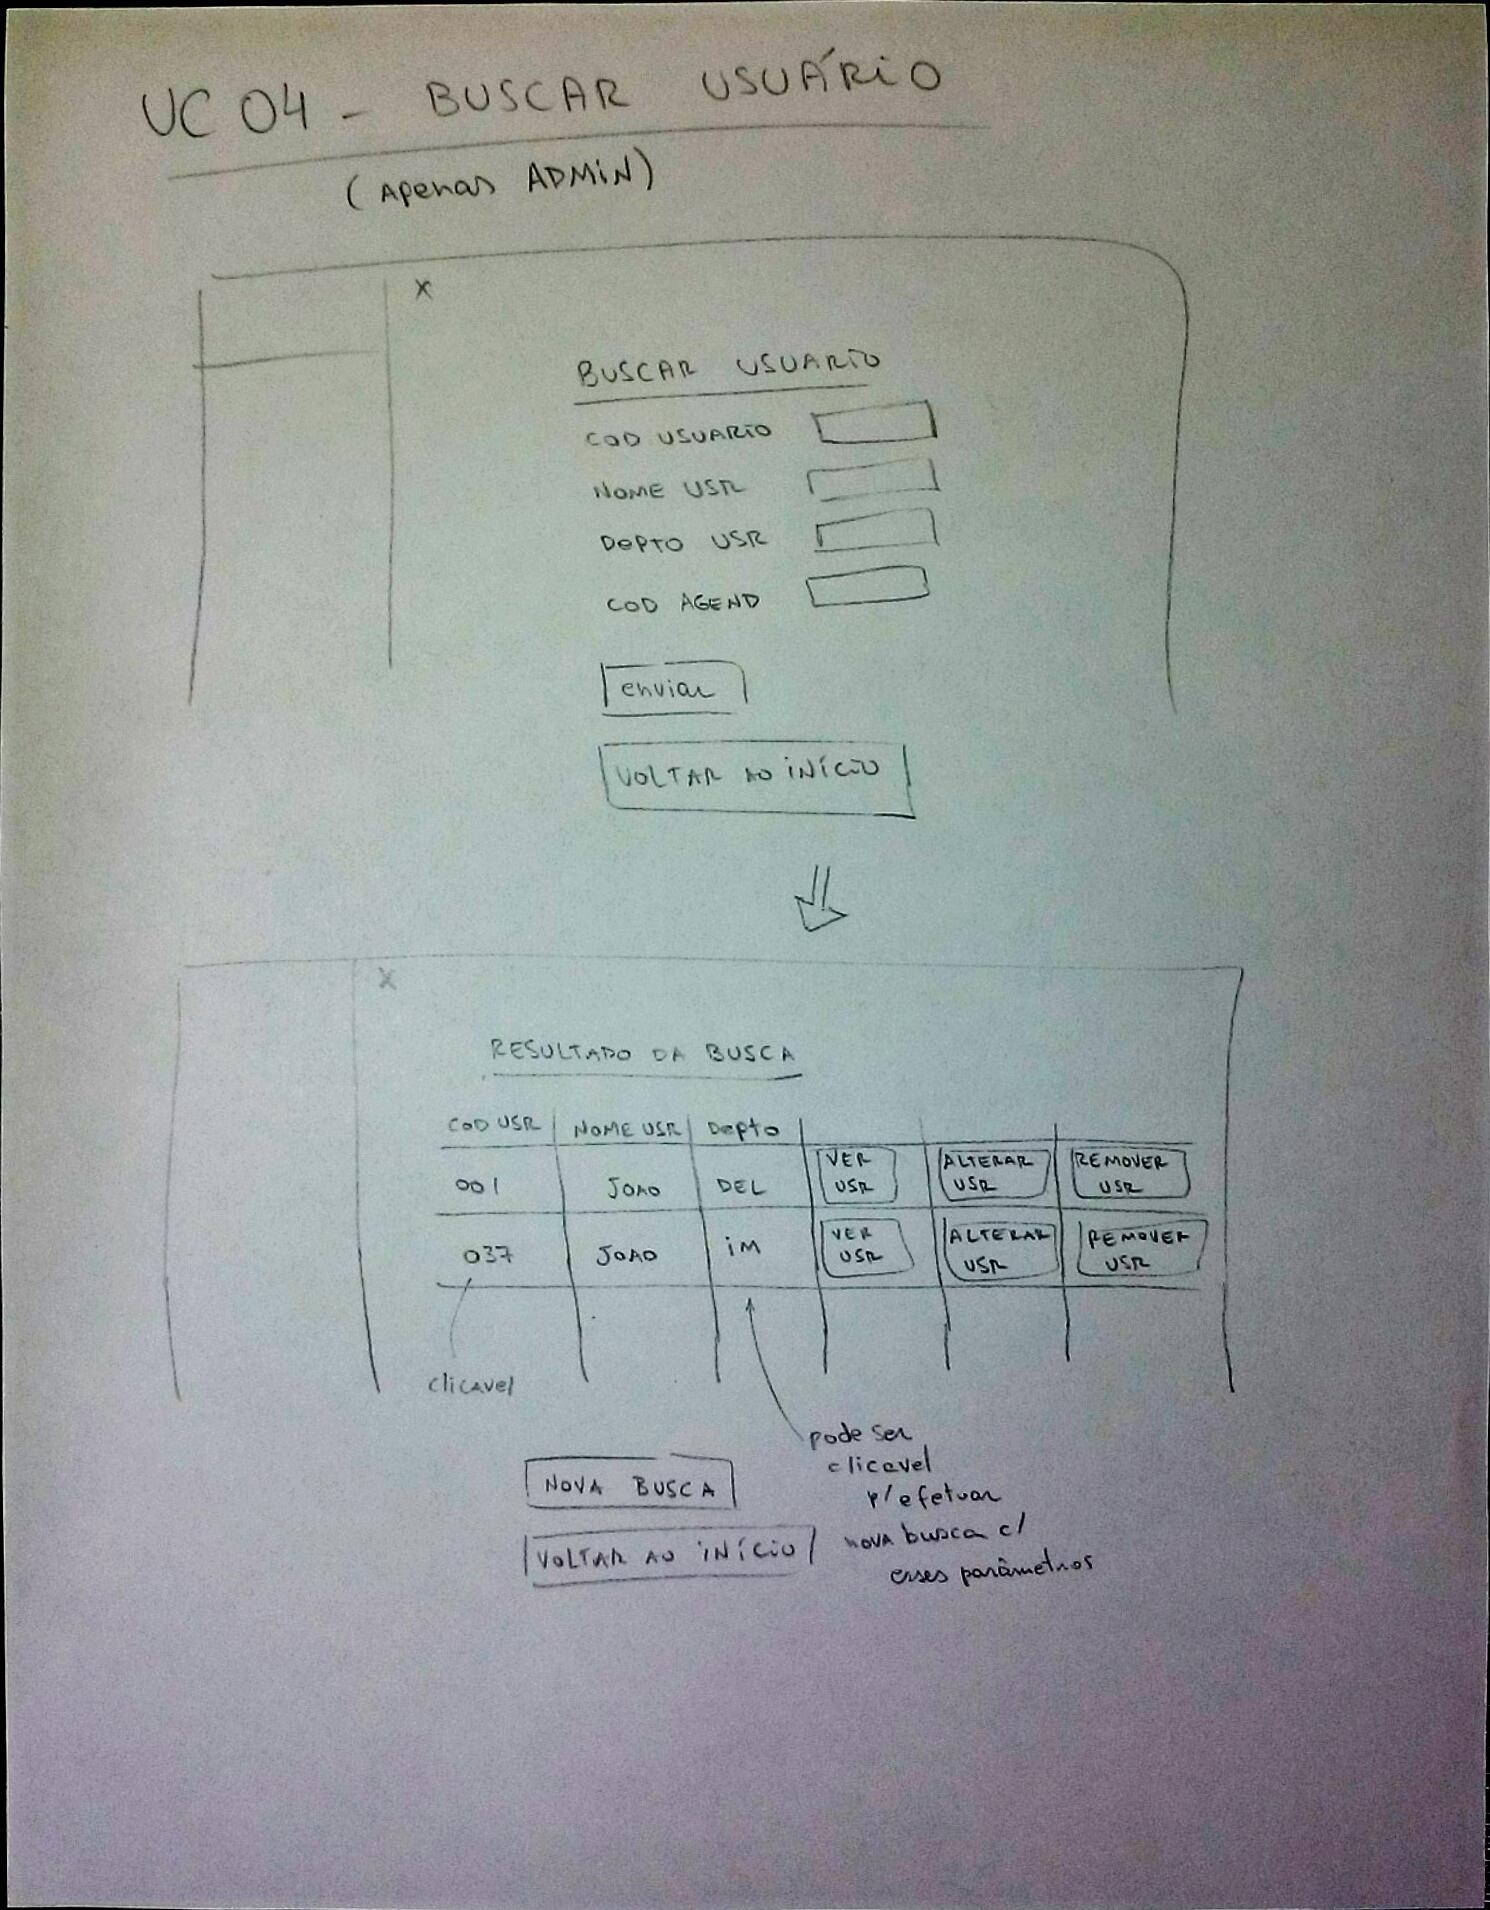 UC 04 - BUSCAR USUÁRIO
(Apenas ADMIN)
X
BUSCAR USUARIO
COD USUARIO
NOME USR
DEPTO USR
COD AGEND
enviar
VOLTAR AO INÍCIO
X
RESULTADO DA BUSCA
COD USR NOME USR Depto
001 JOAO DEL VER USR ALTERAR USR REMOVER USR
037 JOAO IM VER USR ALTERAR USR REMOVER USR
clicavel
pode ser
clicavel
p/ efetuar
nova busca c/
esses parâmetros
NOVA BUSCA
VOLTAR AO INÍCIO